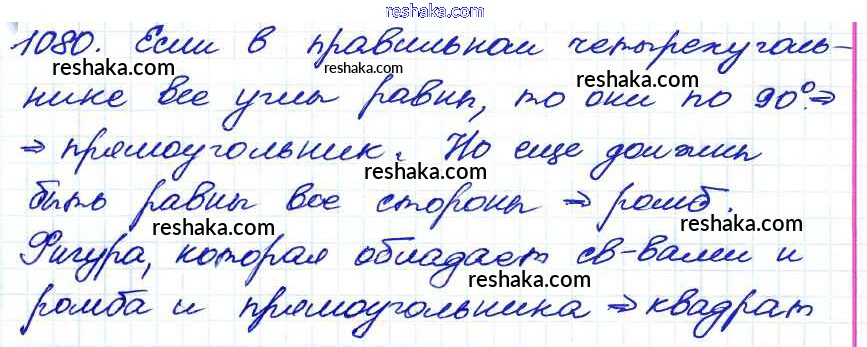 reshaka.com
1080. Если в правильном четырехуголь-
reshaka.com reshaka.com
нике все углы равны, то они по 90°.⇒
reshaka.com reshaka.com
⇒ прямоугольник. Но еще должны
reshaka.com
быть равны все стороны ⇒ ромб.
reshaka.com reshaka.com
Фигура, которая обладает св-вами и
reshaka.com
ромба и прямоугольника ⇒ квадрат
reshaka.com